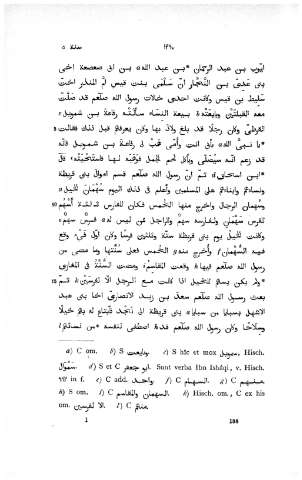 سنة ٥ ١٤٩٠
ايوب بن عبد الرحمان بن عبد الله بن ابى صعصعة اخى
بنى عدى بن النجار ان سلمى بنت قيس ام المنذر اخت
سليط بن قيس وكانت احدى خالات رسول الله صلعم قد صلت
معه القبلتين وبايعته بيعة النساء سألته رفاعة بن شمويل
القرظى وكان رجلا قد بلغ ولاذ بها وكان يعرفهم قبل ذلك فقالت
يا نبى الله بأبى انت وأمى هب لى رفاعة بن شمويل فانه
قد زعم انه سيصلى ويأكل لحم الجمل فوهبه لها فاستحيته قال
ابن اسحاق ثم ان رسول الله صلعم قسم اموال بنى قريظة
ونساءهم وابناءهم على المسلمين وأعلم فى ذلك اليوم سهمان الخيل
وسهمان الرجال واخرج منها الخمس فكان للفارس ثلثة اسهم
للفرس سهمان ولفارسه سهم وللراجل من ليس له فرس سهم
وكانت الخيل يوم بنى قريظة ستة وثلثين فرسا وكان اول فىء وقع
فيه السهمان واخرج منه الخمس فعلى سنتها وما مضى من
رسول الله صلعم فيها وقعت المقاسم ومضت السنة فى المغازى
ولم يكن يسهم للخيل اذا كانت مع الرجل الا لفرسين ثم
بعث رسول الله صلعم سعد بن زيد الانصارى اخا بنى عبد
الاشهل بسبايا من سبايا بنى قريظة الى نجد فابتاع له بهم خيلا
وسلاحا وكان رسول الله صلعم قد اصطفى لنفسه من نسائهم
a) C om. b) S وبايعت. c) S hic et mox سمويل, Hisch.
سموأل. d) S et C ابو جعفر. Sont verba Ibn Ishâqi, v. Hisch.
e) C add. واحد. f) C السهام. g) C
h) S om. i) C السهمان والمقاسم. k) Hisch. om., C ex his
om. الا لفرسين. l) C
I 188